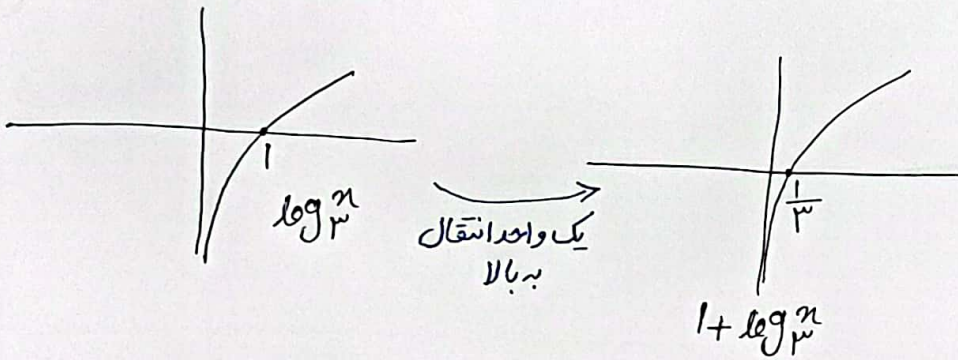 ۱
log_۳^x
یک واحد انتقال
به بالا
۱/۳
۱ + log_۳^x